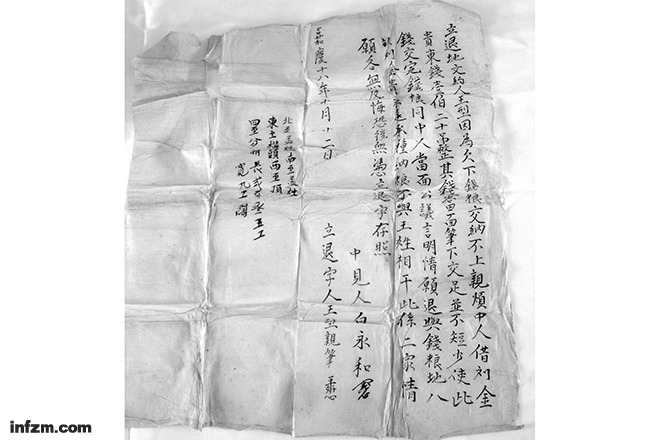 立退地文約人王型因為欠下錢粮交納不上親煩中人借到金
貴東錢壹伯二十吊整其錢當面筆下交足並不短少使此
錢交完錢粮同中人當面公議言明情願退與錢粮地八
承種納粮不與王姓相干此係二家情
願各無反悔恐後無憑立退字存照
中見人白永和
立退字人王型親筆
嘉慶十八年十月十二日
北至孟姓南至孟姓
東至 頭西至頂
四至分明長
寬九工
infzm.com